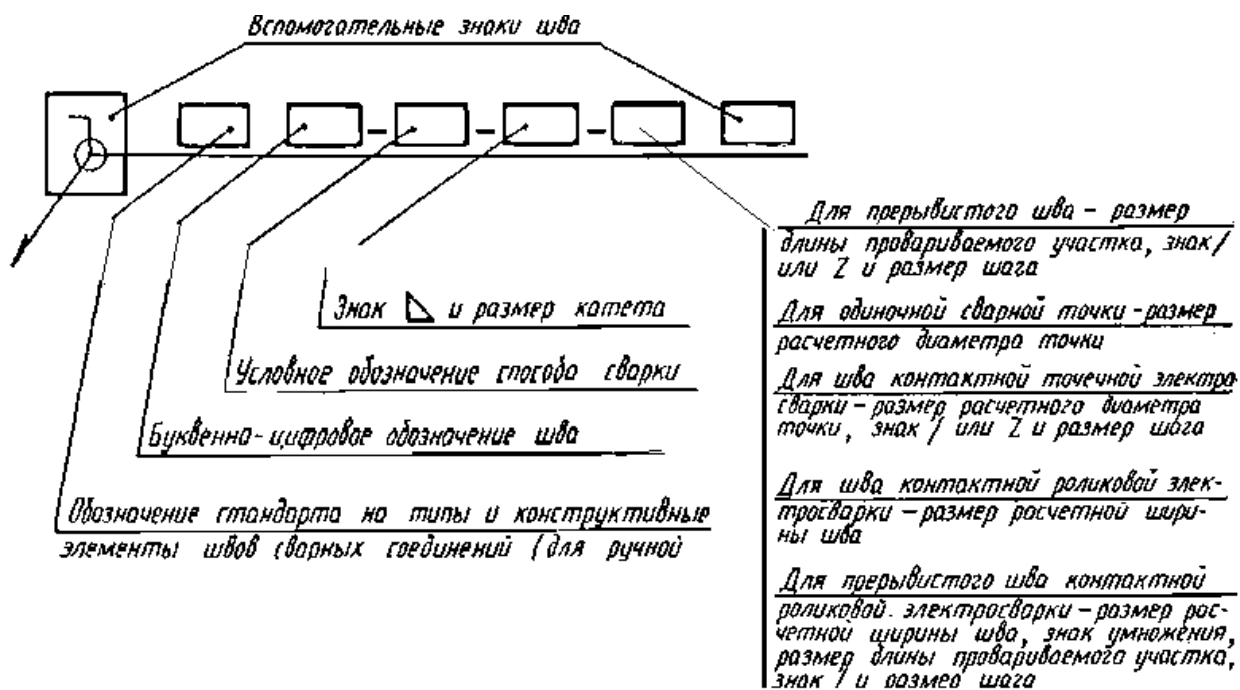 Вспомогательные знаки шва
Знак и размер катета
Условное обозначение способа сварки
Буквенно-цифровое обозначение шва
Обозначение стандарта на типы и конструктивные
элементы швов сварных соединений (для ручной
Для прерывистого шва – размер
длины провариваемого участка, знак /
или Z и размер шага
Для одиночной сварной точки – размер
расчетного диаметра точки
Для шва контактной точечной электро
сварки – размер расчетного диаметра
точки, знак / или Z и размер шага
Для шва контактной роликовой элек-
тросварки – размер расчетной шири-
ны шва
Для прерывистого шва контактной
роликовой. электросварки – размер рас-
четной ширины шва, знак умножения,
размер длины провариваемого участка,
знак / и размер шага